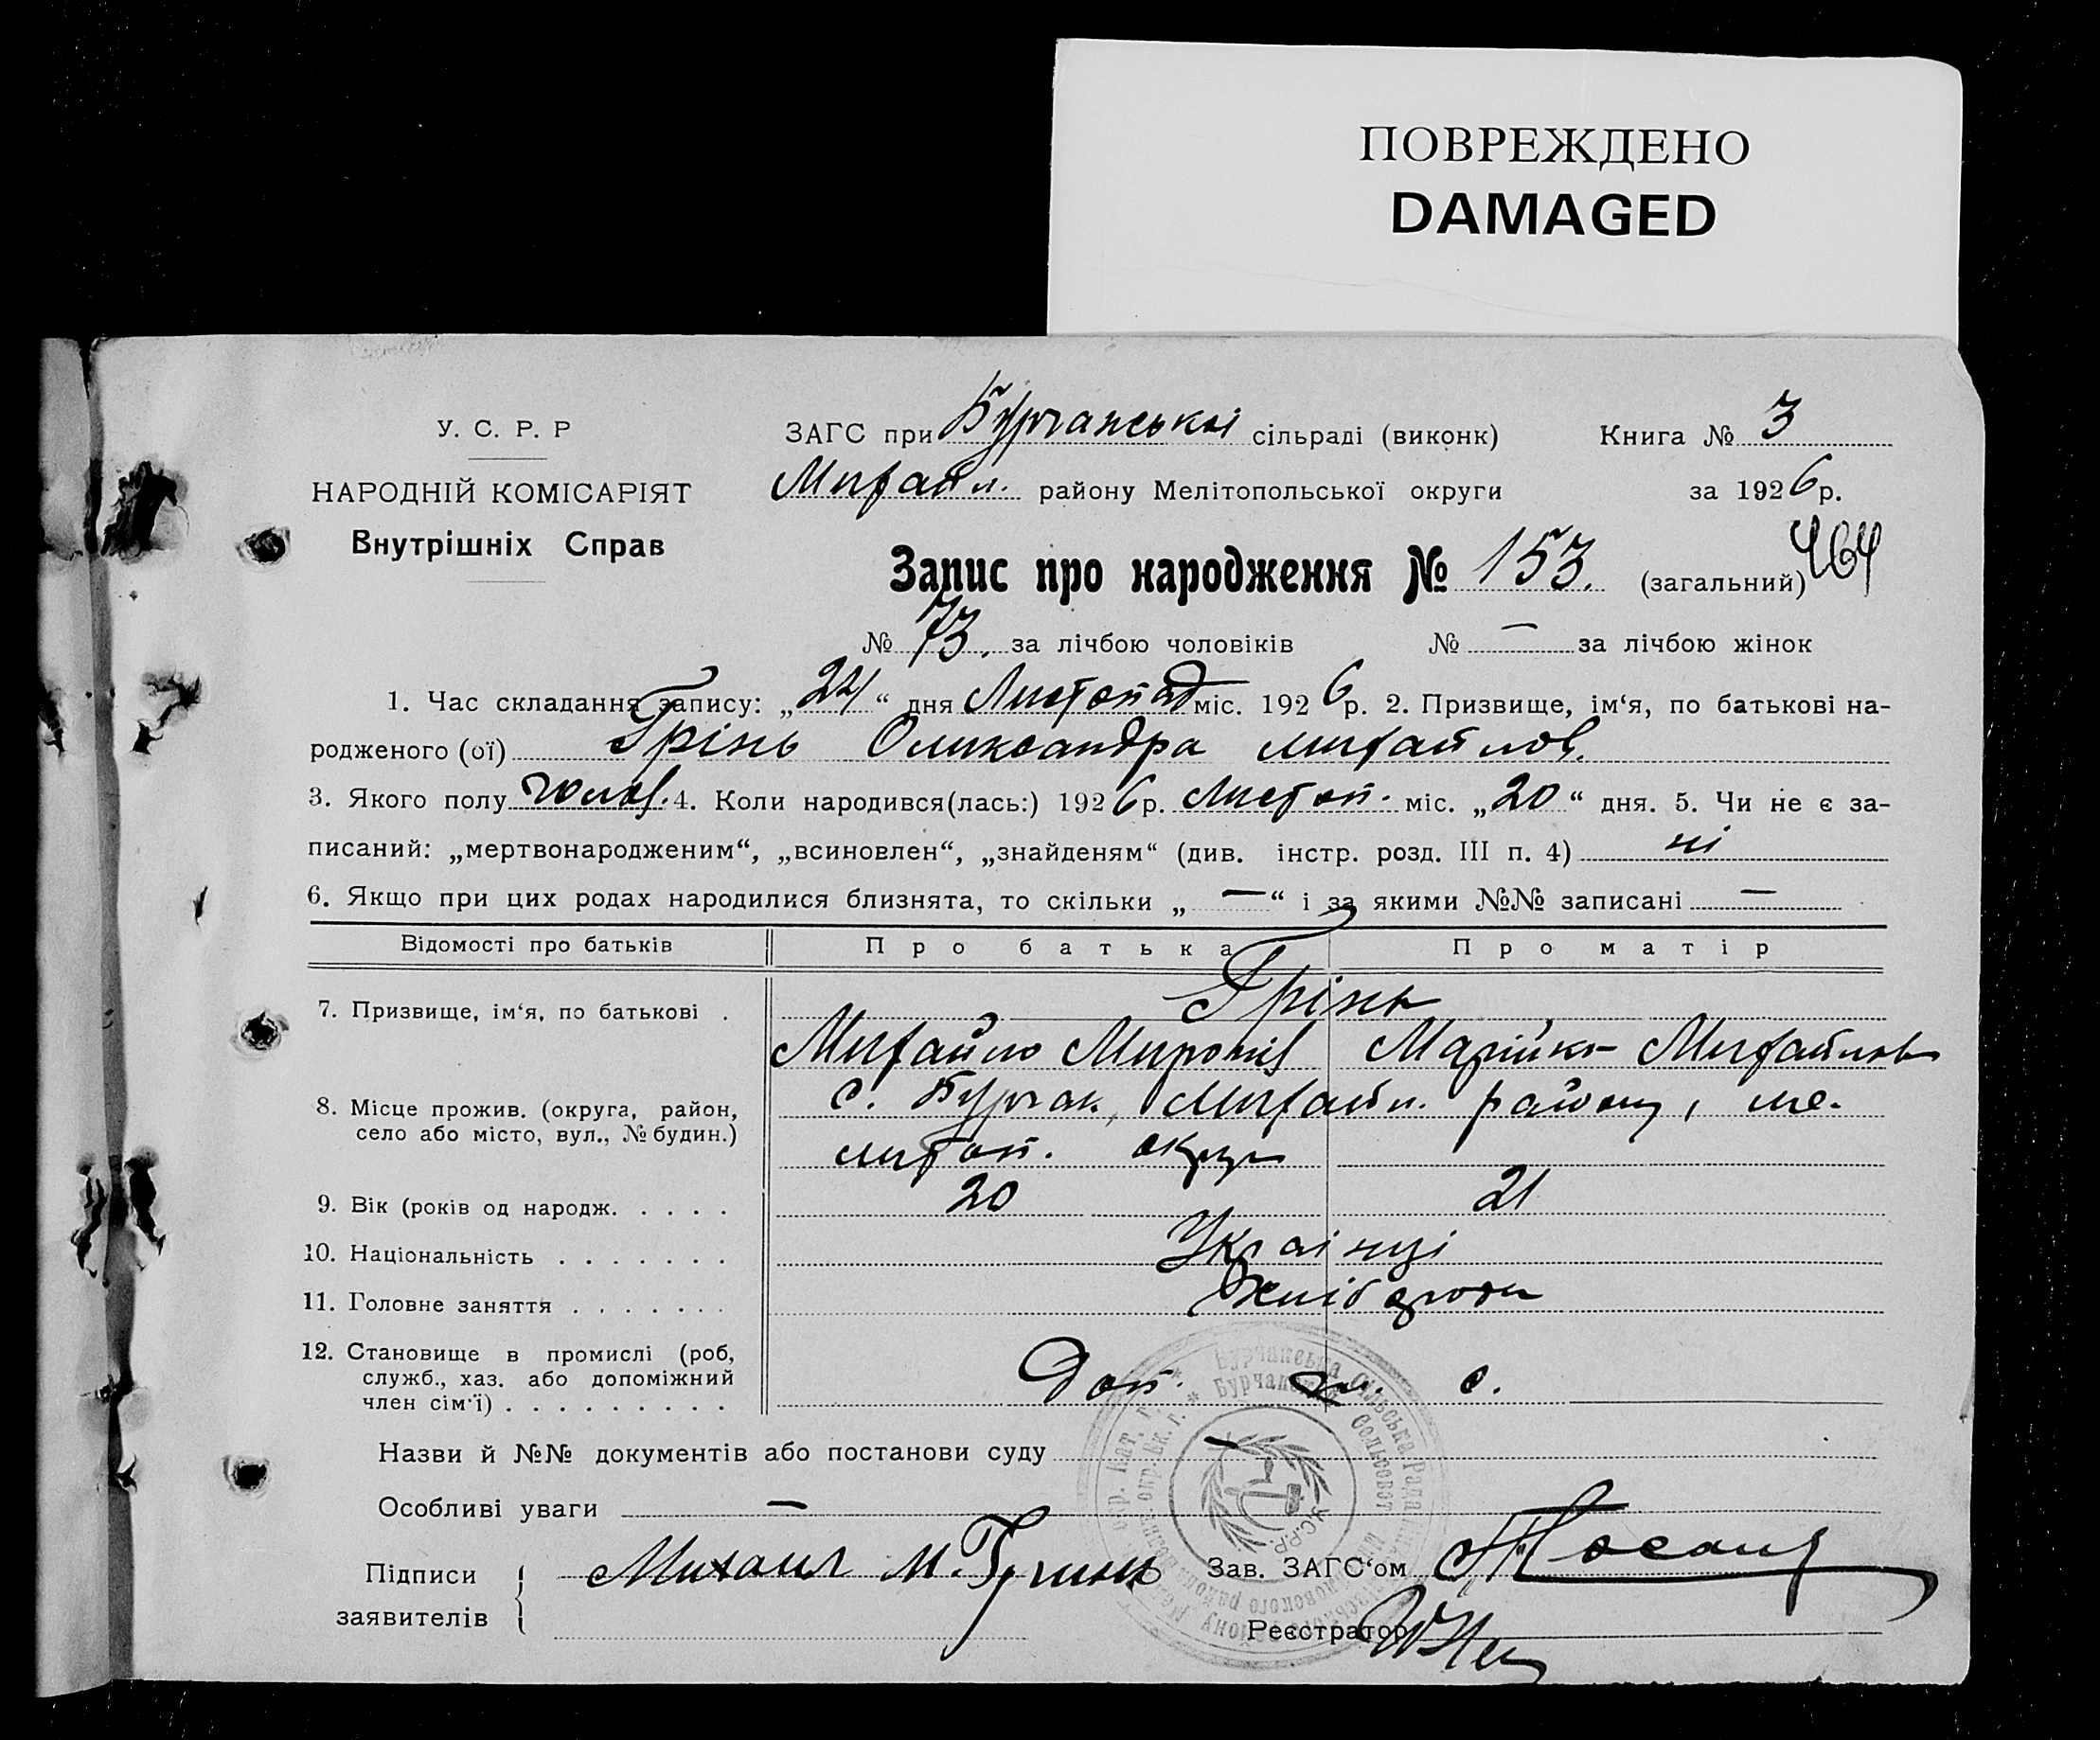 ПОВРЕЖДЕНО
DAMAGED
У. С. Р. Р
НАРОДНІЙ КОМІСАРІЯТ
Внутрішніх Справ
ЗАГС при Бурчанській сільраді (виконк) Книга № 3
Михайл. району Мелітопольської округи за 1926 р.
Запис про народження № 153. (загальний) 464
№ 73. за лічбою чоловіків № — за лічбою жінок
1. Час складання запису: „24“ дня Листопад міс. 1926 р. 2. Призвище, ім‘я, по батькові на-
родженого (ої) Грінь Олександра Михайлов.
3. Якого полу чолов. 4. Коли народився(лась:) 1926 р. Листоп. міс. „20“ дня. 5. Чи не є за-
писаний: „мертвонародженим“, „всиновлен“, „знайденям“ (див. інстр. розд. III п. 4) ні
6. Якщо при цих родах народилися близнята, то скільки „—“ і за якими №№ записані —
Відомості про батьків Про батька Про матір
7. Призвище, ім‘я, по батькові . Грінь
Михайло Миронів Марійка Михайлов
8. Місце прожив. (округа, район, село або місто, вул., № будин.) с. Бурчак, Михайл. району, ме-
литоп. округи
9. Вік (років од народж. . . . . 20 21
10. Національність . . . . . . . Українці
11. Головне заняття . . . . . . . Хлібороби
12. Становище в промислі (роб,
служб., хаз. або допоміжний
член сім‘ї) . . . . . . . . . Доп. чл. с.
Назви й №№ документів або постанови суду —
Особливі уваги —
Підписи заявителів Михаил М. Гринь Зав. ЗАГС‘ом
Реєстратор
Бурчанська Сільська Рада
Бурчанский Сельсовет
У.С.Р.Р.